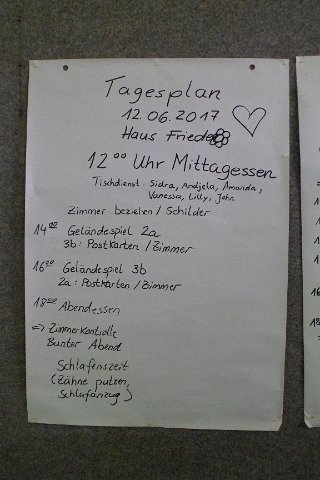 Tagesplan
12.06.2017
Haus Friede
12⁰⁰ Uhr Mittagessen
Tischdienst: Sidra, Andjela, Amanda,
Vanessa, Lilly, John
Zimmer beziehen / Schilder
14⁰⁰ Geländespiel 2a
3b: Postkarten / Zimmer
16⁰⁰ Geländespiel 3b
2a: Postkarten / Zimmer
18⁰⁰ Abendessen
=> Zimmerkontrolle
Bunter Abend
Schlafenszeit
(Zähne putzen,
Schlafanzug)